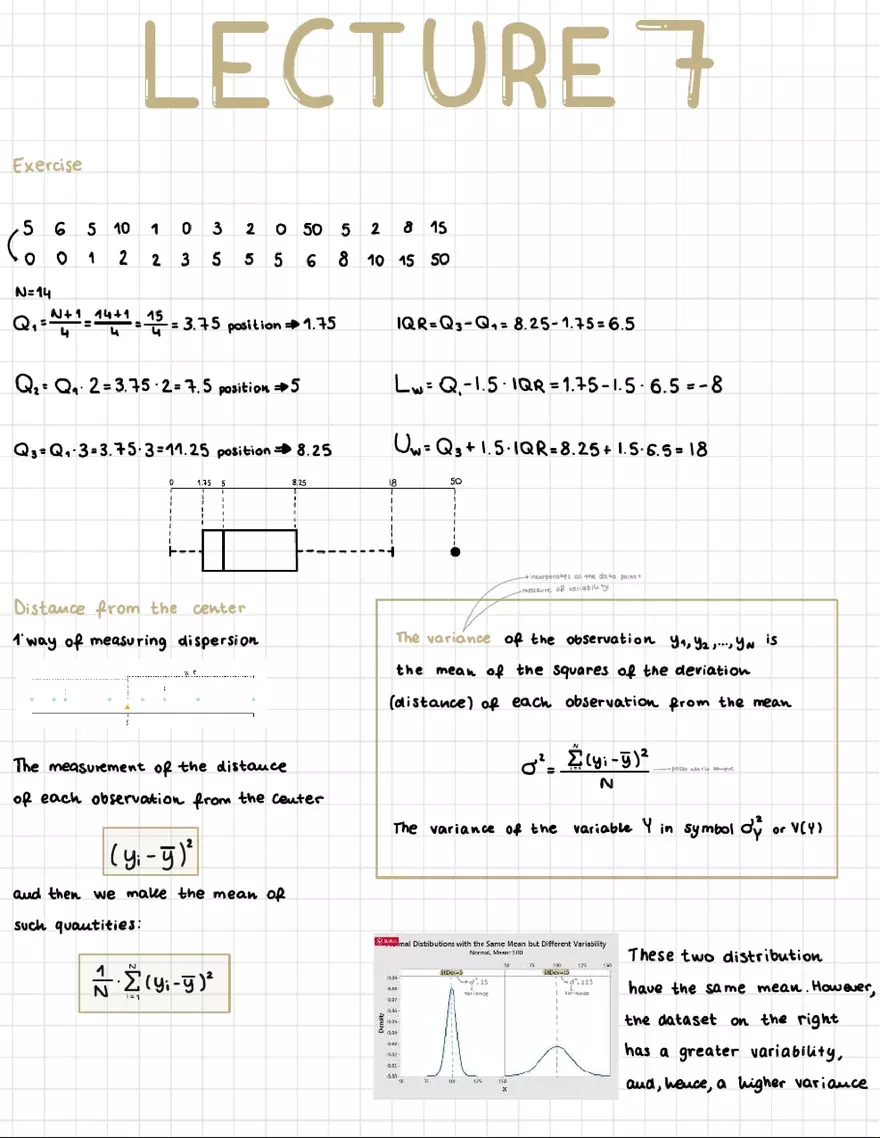 LECTURE 7
Exercise
5 6 5 10 1 0 3 2 0 50 5 2 8 15
0 0 1 2 2 3 5 5 5 6 8 10 15 50
N=14
Q₁ = N+1/4 = 14+1/4 = 15/4 = 3.75 position ⇒ 1.75
IQR = Q₃ - Q₁ = 8.25 - 1.75 = 6.5
Q₂ = Q₁ · 2 = 3.75 · 2 = 7.5 position ⇒ 5
Lw = Q₁ - 1.5 · IQR = 1.75 - 1.5 · 6.5 = -8
Q₃ = Q₁ · 3 = 3.75 · 3 = 11.25 position ⇒ 8.25
Uw = Q₃ + 1.5 · IQR = 8.25 + 1.5 · 6.5 = 18
0 1.75 5 8.25 18 50
Distance from the center
1 way of measuring dispersion
5
The measurement of the distance
of each observation from the center
(yi - ȳ)²
and then we make the mean of
such quantities:
1/N · N Σ i=1 (yi - ȳ)²
incorporates all the data points
measure of variability
The variance of the observation y₁, y₂, ..., yN is
the mean of the squares of the deviation
(distance) of each observation from the mean
σ² = N Σ i=1 (yi - ȳ)² / N
The variance of the variable Y in symbol σ²Y or V(Y)
Normal Distibutions with the Same Mean but Different Variability
Normal, Mean=100
50 75 100 125 150
StDev=5 StDev=15
variance variance
0.09
0.08
0.07
0.06
0.05
0.04
0.03
0.02
0.01
0.00
Density
50 75 100 125 150
X
These two distribution
have the same mean. However,
the dataset on the right
has a greater variability,
and, hence, a higher variance